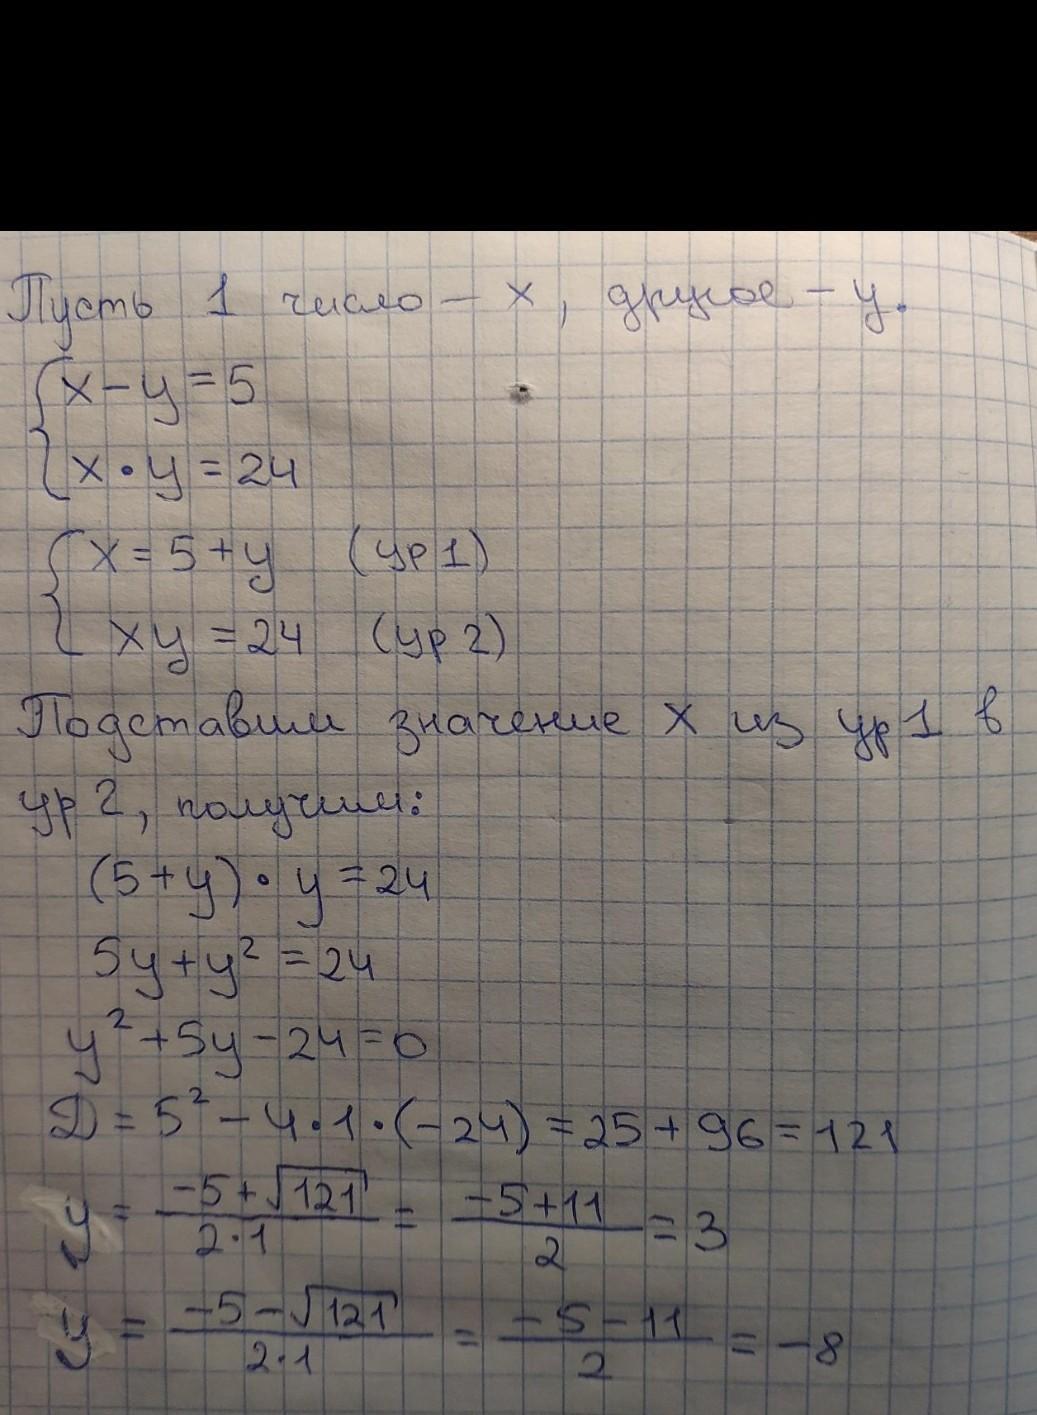 Пусть 1 число – x, другое – y.
x – y = 5
x · y = 24
x = 5 + y (ур 1)
xy = 24 (ур 2)
Подставим значение x из ур 1 в
ур 2, получим:
(5 + y) · y = 24
5y + y² = 24
y² + 5y – 24 = 0
D = 5² – 4 · 1 · (–24) = 25 + 96 = 121
y = (–5 + √121) / (2 · 1) = (–5 + 11) / 2 = 3
y = (–5 – √121) / (2 · 1) = (–5 – 11) / 2 = –8